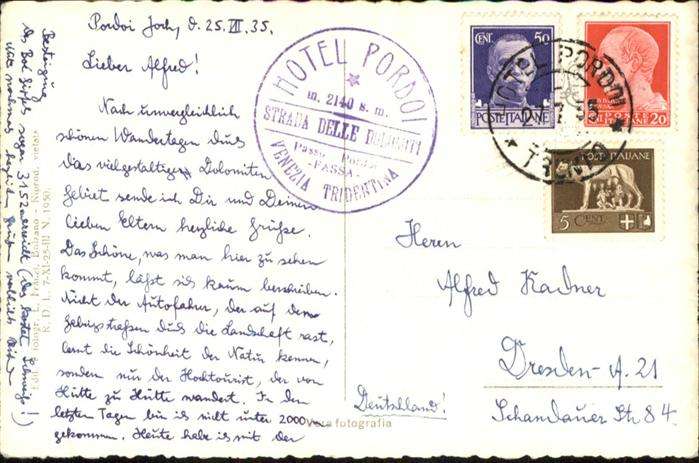 Pordoi Joch, d. 25. VII. 35.
Lieber Alfred!
Nach unvergleichlich
schönen Wandertagen durch
das vielgestaltige Dolomiten
Gebiet sende ich Dir und Deinen
lieben Eltern herzliche Grüße.
Das Schöne, was man hier zu sehen
kommt, läßt sich kaum beschreiben.
Nicht der Autofahrer, der auf den
Gebirgsstraßen durch die Landschaft rast,
lernt die Schönheit der Natur kennen,
sondern nur der Hochtourist, der von
Hütte zu Hütte wandert. In den
letzten Tagen bin ich nicht unter 2000
gekommen. Heute habe ich mit der
Besteigung
des Boé Gipfels sogar 3152 erreicht (das kostet Schweiß!)
Mit nochmals herzlichen Grüßen verbleibt
HOTEL PORDOI
m. 2140 s. m.
STRADA DELLE DOLOMITI
Passo Pordoi
-FASSA-
VENEZIA TRIDENTINA
CENT. 50
POSTE ITALIANE
20
POSTE ITALIANE
5 CENT.
HOTEL PORDOI
TRENTO
Herrn
Alfred Kadner
Dresden-A. 21
Schandauer Str 84
Deutschland!
Vera fotografia
Bolzano - Riprod. vietata
R. D. L. 7-XI-25-III N. 1950.